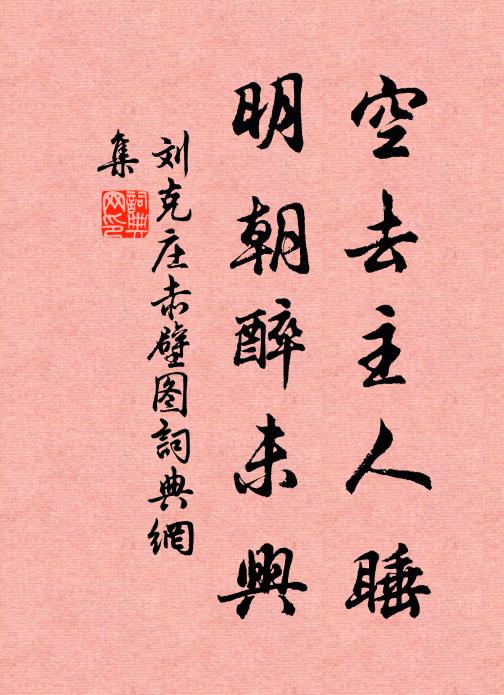 空去主人睡
明朝醉未興
刘克庄赤壁图詞典網
集
詞典
网印